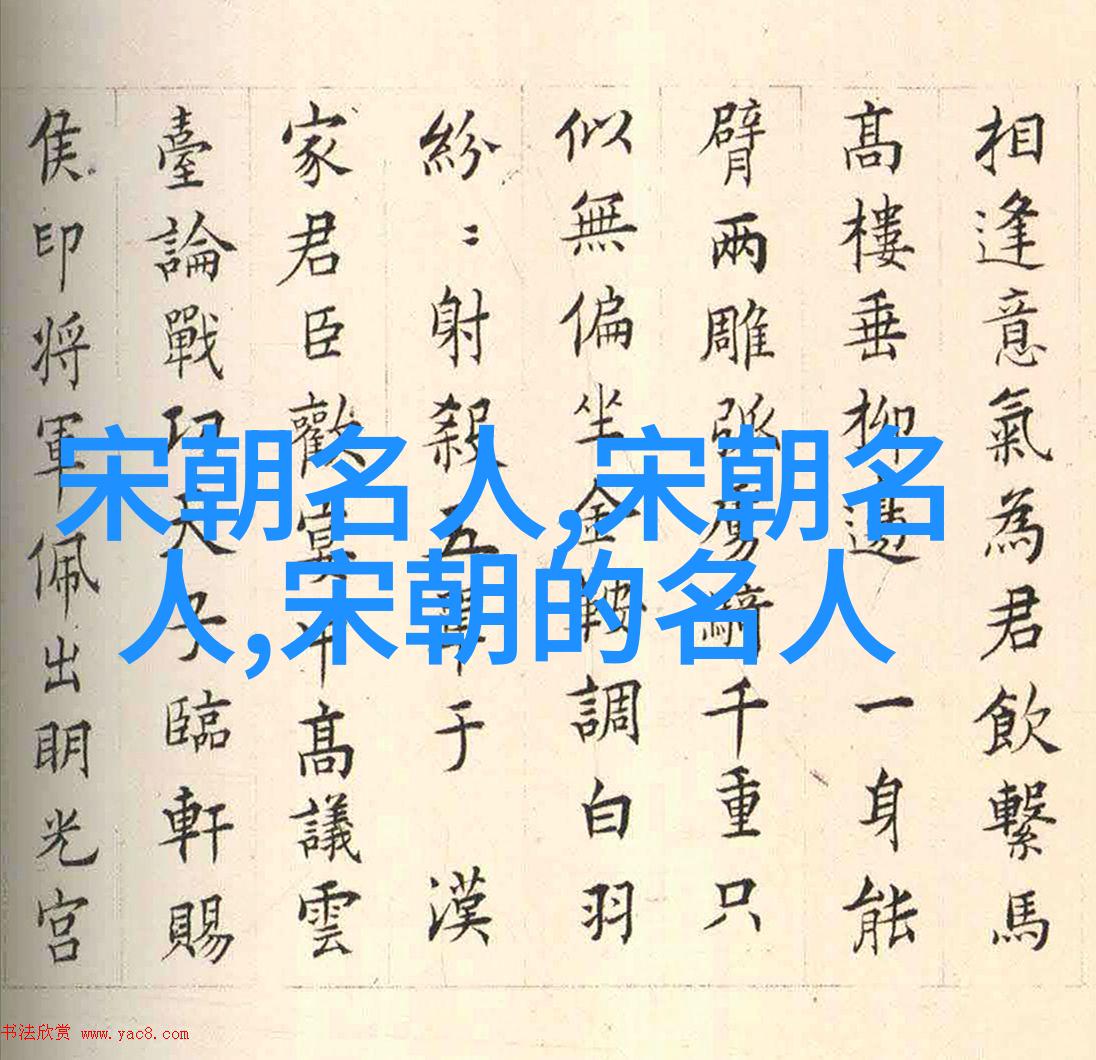 相逢意氣為君飲繫馬
髙樓垂柳邉一身能
臂兩雕弧虜騎千重只
似無偏坐金鞍調白羽
紛〻射殺五單于 漢
家君臣歡宴髙議雲
臺論戰功天子臨軒賜
侯印将軍佩出明光宮
宋朝名人,宋朝名
人,宋朝的名人
书法欣赏 www.yac8.com